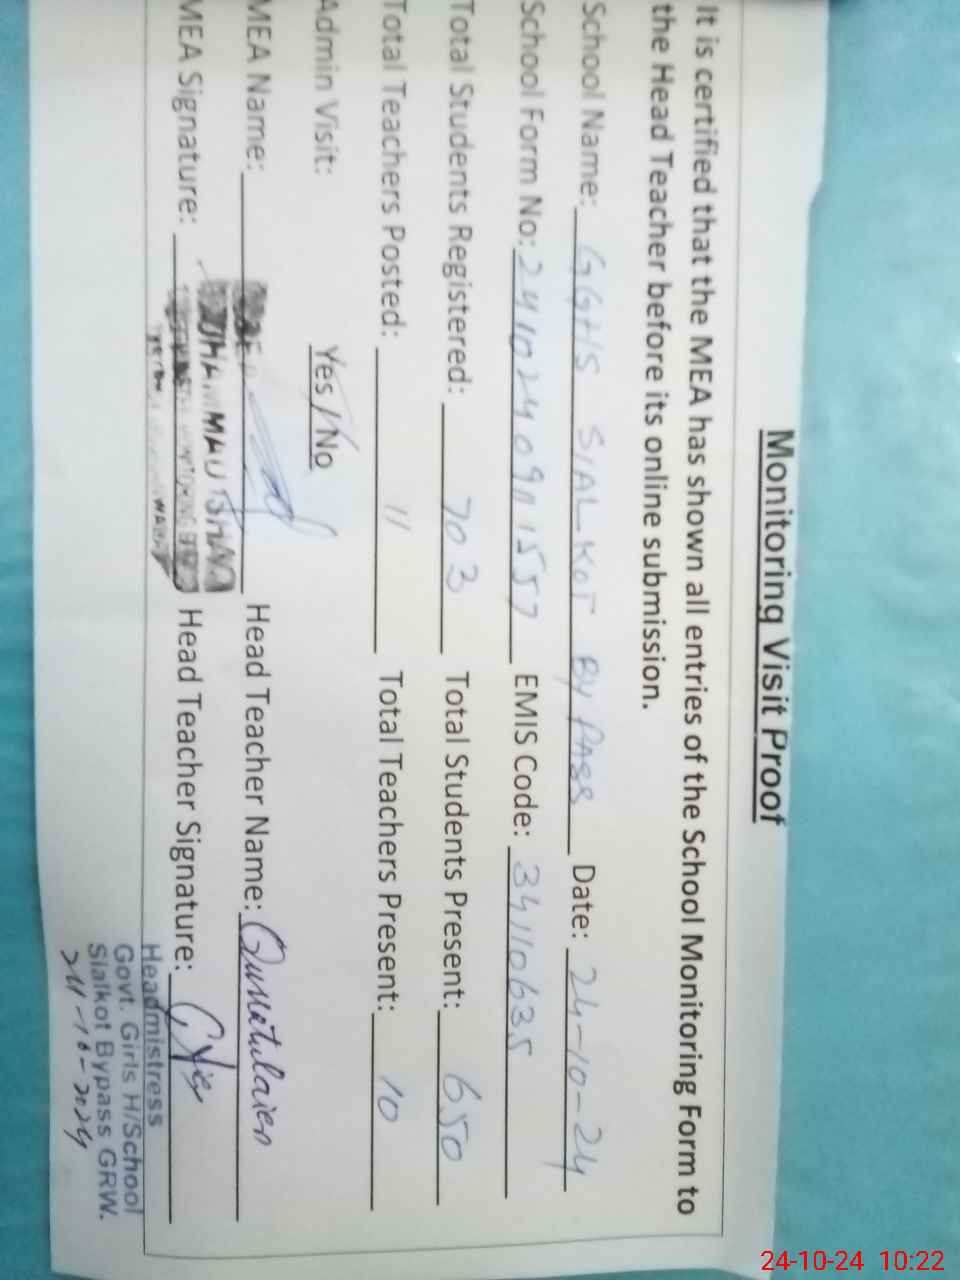 Monitoring Visit Proof
It is certified that the MEA has shown all entries of the School Monitoring Form to
the Head Teacher before its online submission.
School Name: GGHS SIALKOT BY PASS Date: 24-10-24
School Form No: 24102409011557 EMIS Code: 34110635
Total Students Registered: 703 Total Students Present: 650
Total Teachers Posted: 11 Total Teachers Present: 10
Admin Visit: Yes / No
MEA Name: Head Teacher Name: Qurratulaien
MEA Signature: Head Teacher Signature:
Headmistress
Govt. Girls H/School
Sialkot Bypass GRW.
24-10-2024
24-10-24 10:22